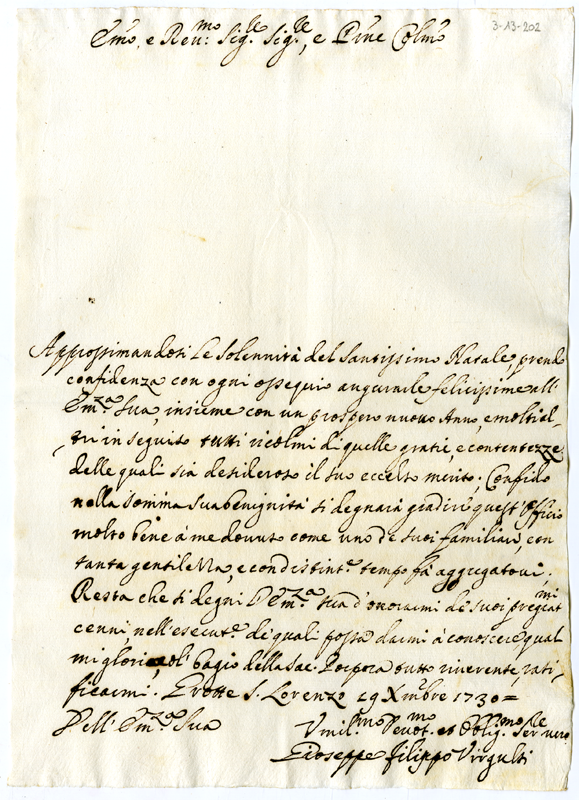 3-13-202
Emo, e Reu:mo Sig.re Sig.re, e Prne Colmo
Approssimandosi le Solennità del Santissimo Natale, prendo
confidenza con ogni ossequio augurarle felicissime all'
Em.za Sua, insieme con un prospero nuouo Anno, e molti al,
,tri in seguito tutti ricolmi di quelle gratie, e contentezze,
delle quali sia desideroso il suo eccelso merito; Confido
nella somma sua benignità si degnarà gradire quest'Officio
molto bene à me douuto come uno de suoi familiari, con
tanta gentilezza, e condistint.e tempo fà aggregatoui;
Resta che si degni l'Em.za sua d'onorarmi de suoi pregiat.mi
cenni nell'esecut.e de quali possa darmi à conoscere, qual
mi glorio, di bagio della Sac. Porpora tutto riuerente rati,
ficarmi. Grotte S. Lorenzo 19 Xmbre 1730=
Dell'Em.za Sua
Vmil.mo Deuot.mo et Oblig.mo Ser.re uero
Gioseppe Filippo Virgulti